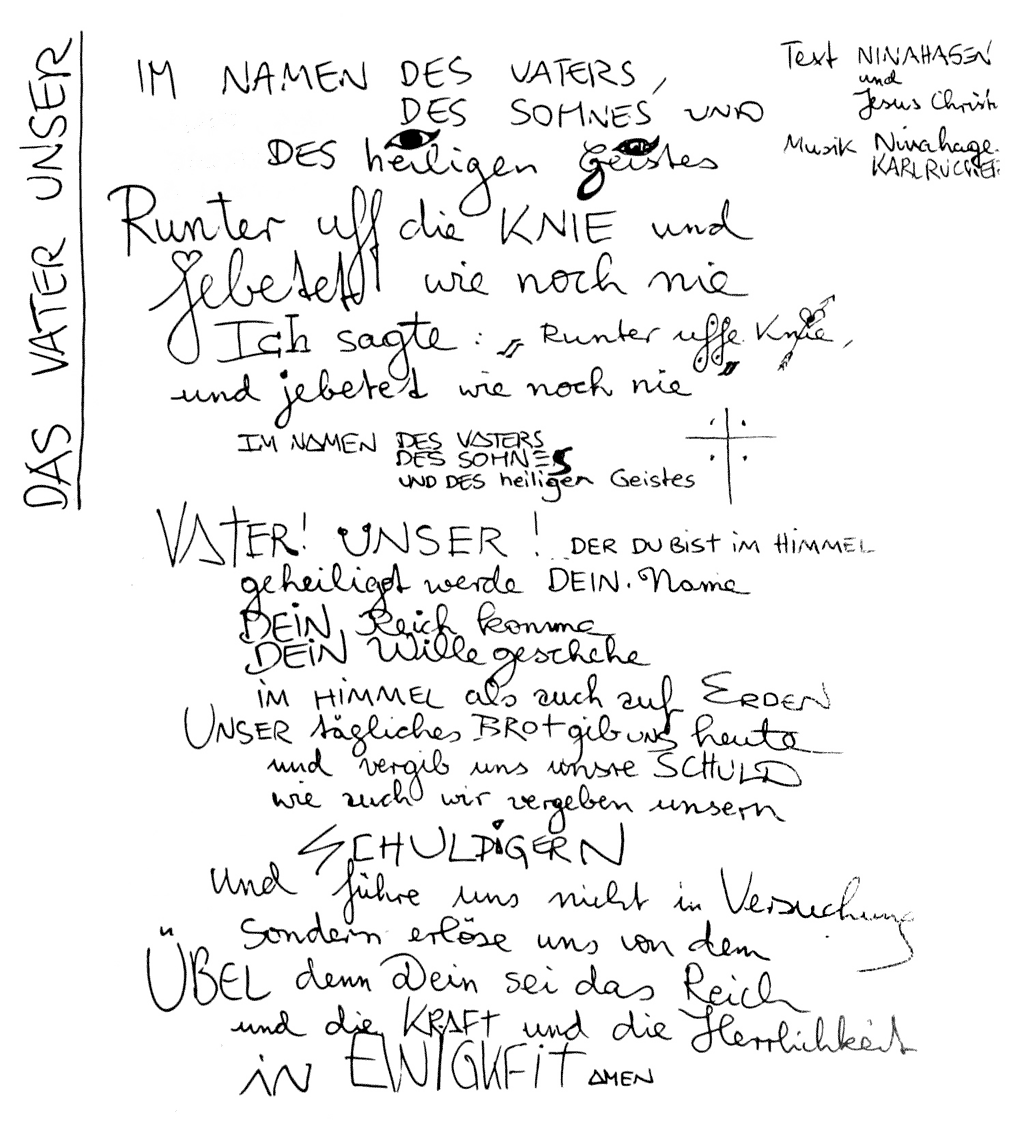 DAS VATER UNSER
IM NAMEN DES VATERS,
DES SOHNES UND
DES heiligen Geistes
Text NINAHAGEN
und
Jesus Christ
Musik Ninahage
KARL RUCKER
Runter uff die KNIE und
jebetet wie noch nie
Ich sagte: „Runter uffe Knie,
und jebetet wie noch nie"
IM NAMEN DES VATERS
DES SOHNES
UND DES heiligen Geistes
VATER! UNSER! DER DU BIST iM HiMMEL
geheiligt werde DEIN. Name
DEiN Reich komme
DEiN Wille geschehe
iM HiMMEL als auch auf ERDEN
UNSER tägliches BROt gib UNS heute
und vergib uns unsre SCHULD
wie auch wir vergeben unsern
SCHULDiGERN
und führe uns nicht in Versuchung
Sondern erlöse uns von dem
ÜBEL denn Dein sei das Reich
und die KRAFT und die Herrlichkeit
iN EWIGKEiT AMEN